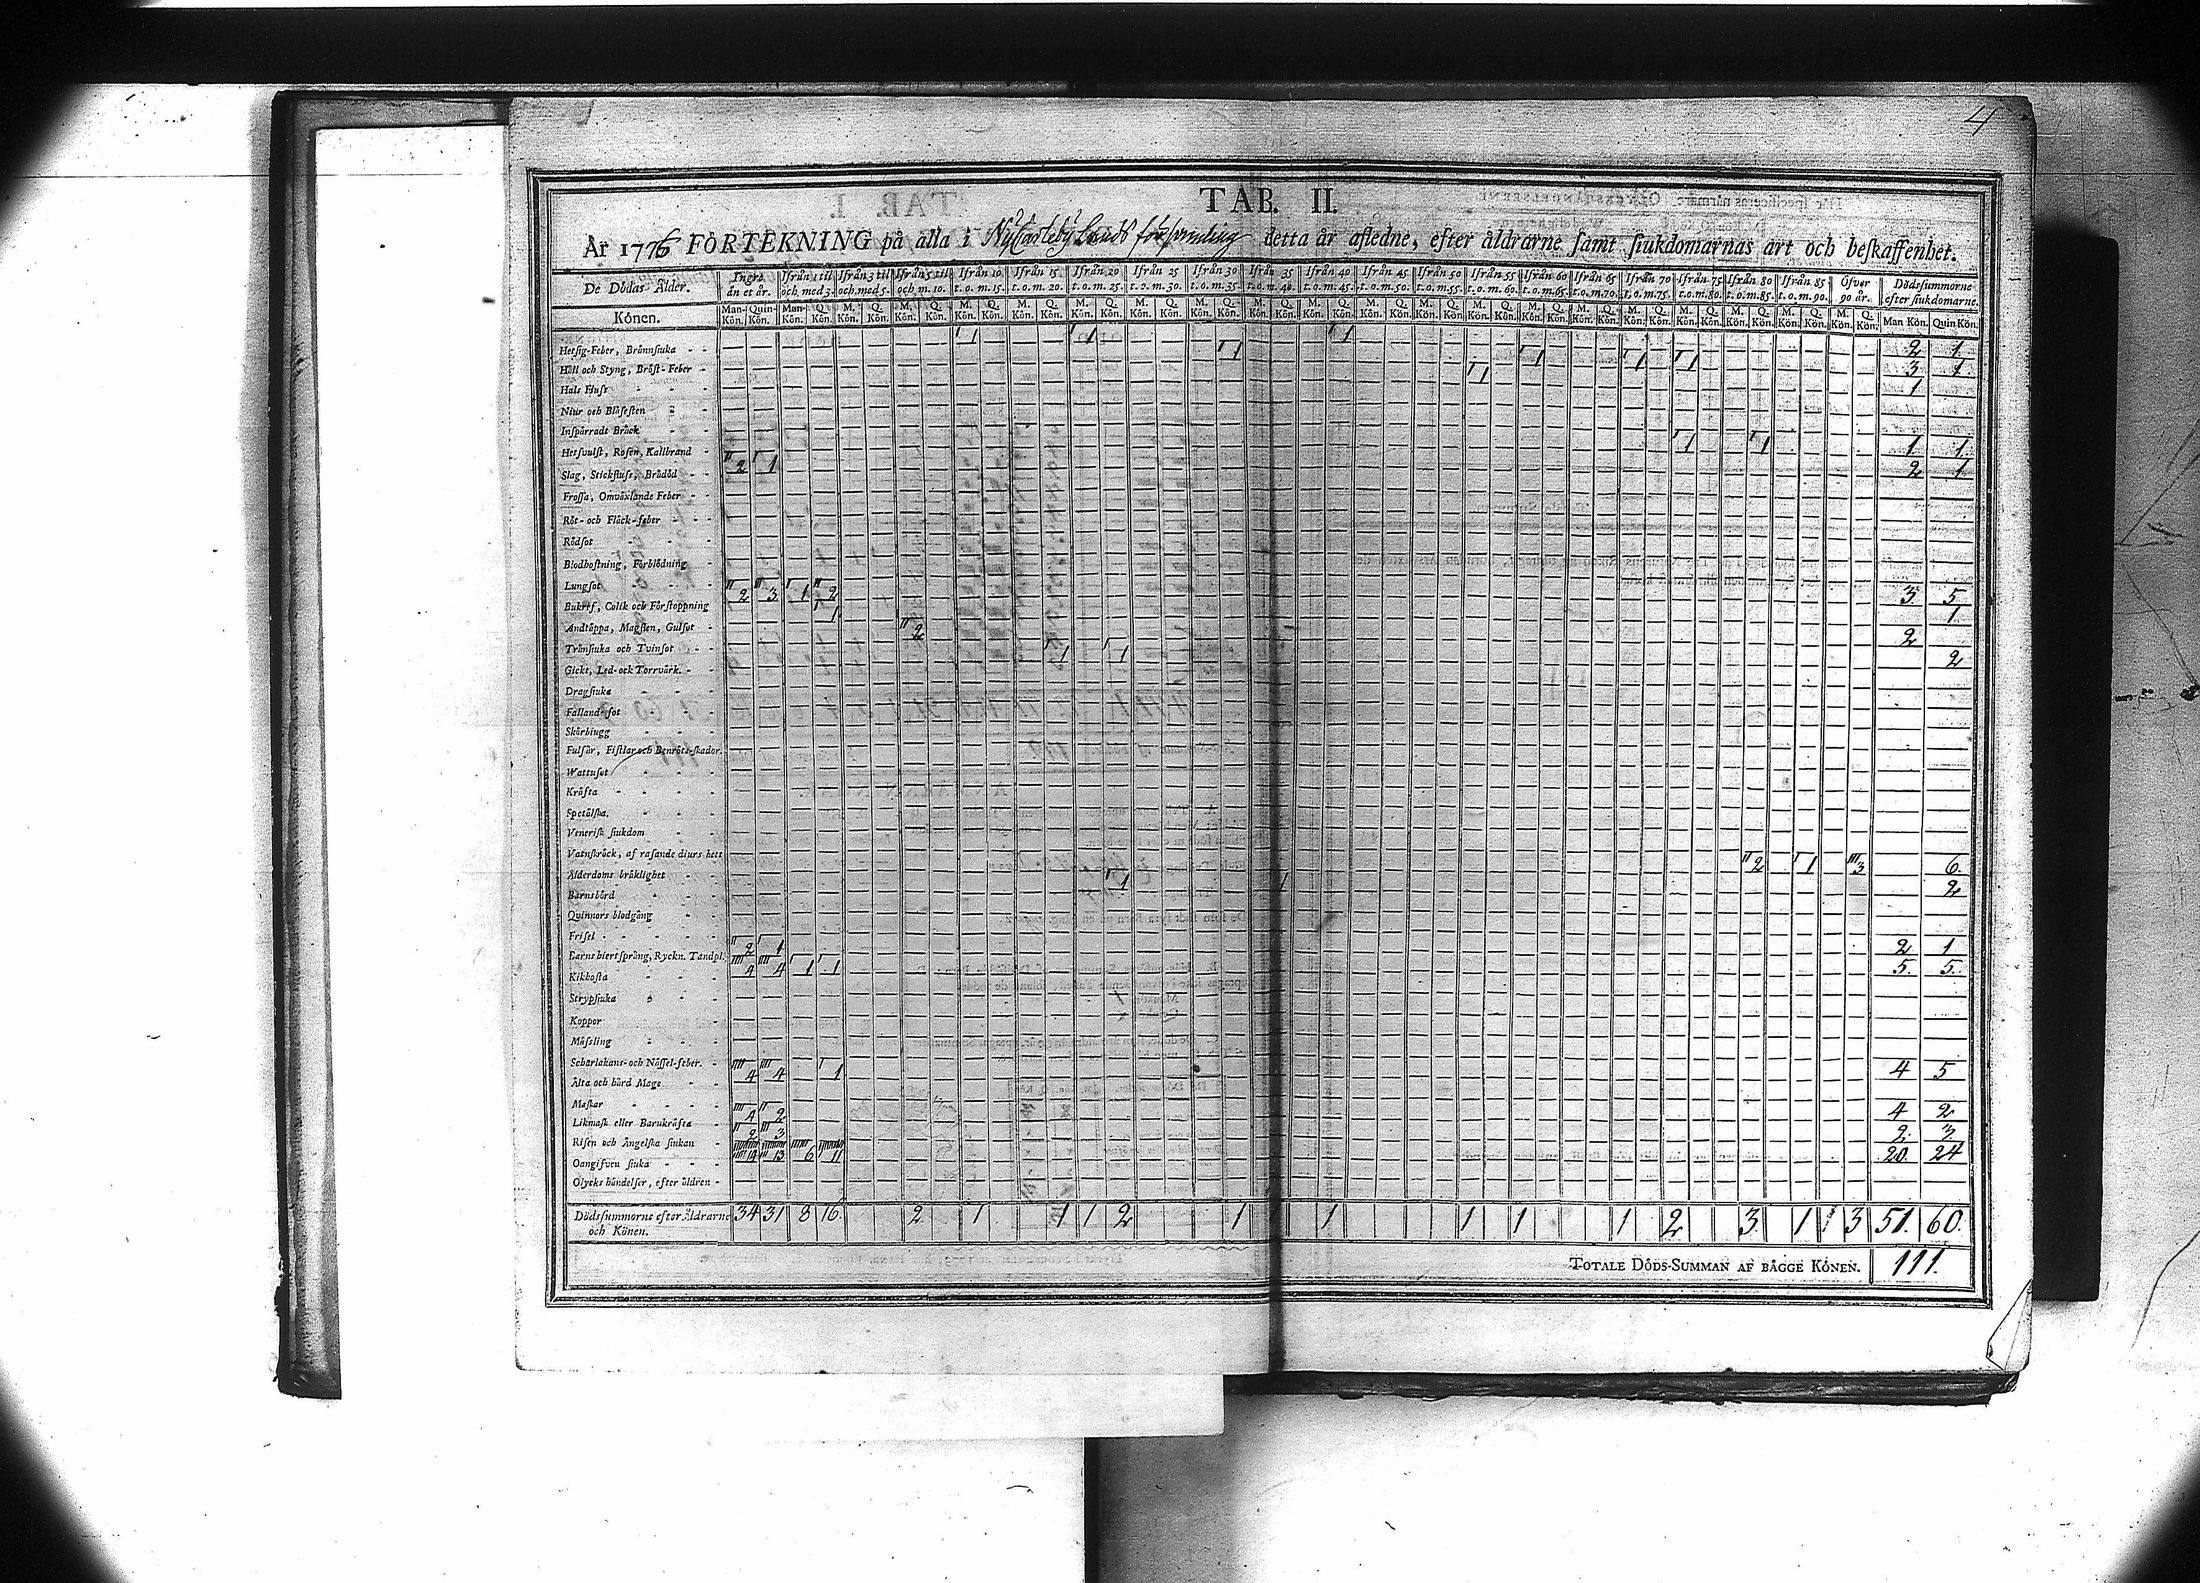 4
TAB. II.
År 1776 FÖRTEKNING på alla i NyCarleby Lands församling detta år afledne, efter åldrarne samt siukdomarnas art och beskaffenhet.
De Dödas Ålder. Ingre än et år. Ifrån 1 til och med 3. Ifrån 3 til och med 5. Ifrån 5 til och m. 10. Ifrån 10 t.o.m. 15. Ifrån 15 t.o.m. 20. Ifrån 20 t.o.m. 25. Ifrån 25 t.o.m. 30. Ifrån 30 t.o.m. 35. Ifrån 35 t.o.m. 40. Ifrån 40 t.o.m. 45. Ifrån 45 t.o.m. 50. Ifrån 50 t.o.m. 55. Ifrån 55 t.o.m. 60. Ifrån 60 t.o.m. 65. Ifrån 65 t.o.m. 70. Ifrån 70 t.o.m. 75. Ifrån 75 t.o.m. 80. Ifrån 80 t.o.m. 85. Ifrån 85 t.o.m. 90. Öfver 90 år. Dödssummorne efter siukdomarne.
Könen. Man-Kön. Quin-Kön. Man-Kön. Q. Kön. M. Kön. Q. Kön. M. Kön. Q. Kön. M. Kön. Q. Kön. M. Kön. Q. Kön. M. Kön. Q. Kön. M. Kön. Q. Kön. M. Kön. Q. Kön. M. Kön. Q. Kön. M. Kön. Q. Kön. M. Kön. Q. Kön. M. Kön. Q. Kön. M. Kön. Q. Kön. M. Kön. Q. Kön. M. Kön. Q. Kön. M. Kön. Q. Kön. M. Kön. Q. Kön. M. Kön. Q. Kön. M. Kön. Q. Kön. M. Kön. Q. Kön. Man Kön. Quin Kön.
Hetsig-Feber, Brännsiuka - - 1 1 1 2 1
Håll och Styng, Bröst-Feber - 1 1 1 1 3 1
Hals Fluss - - - 1 1
Niur och Blåsesten - -
Inspärradt Bråck - -
Hetsvulst, Rosen, Kallbrand - 1 1 1 1
Slag, Stickfluss, Brådöd - - 2 1 2 1
Frossa, Omväxlande Feber - -
Röt- och Fläck-feber - - -
Rödsot - - -
Blodhostning, Förblödning -
Lungsot - - -
Bukref, Colik och Förstoppning 2 3 1 2 3 5
Andtäppa, Magsten, Gulsot - 1 1
Trånsiuka och Tvinsot - - 2 2
Gickt, Led-ock Torrvärk. - - 1 1 2
Dragsiuka - - -
Fallande sot - - -
Skörbiugg - - -
Fulsår, Fistlar och Benröts-skador.
Wattusot - - -
Kräfta - - - -
Spetälska. - - -
Venerisk siukdom - -
Vatnskräck, af rasande diurs bett
Ålderdoms bräklighet - - 2 1 3 6.
Barnsbörd - - 1 1 2
Quinnors blodgång - -
Frisel - - - -
Barns hiertsprång, Ryckn. Tandpl. 2 1 2 1
Kikhosta - - - 4 4 1 1 5. 5.
Strypsiuka - - -
Koppor - - -
Mässling - - -
Scharlakans- och Nässel-feber. -
Älta och hård Mage - - 4 4 1 4 5
Maskar - - - -
Likmask eller Barnkräfta - 4 2 4 2
Risen och Ängelska siukan - 2 3 2. 3.
Oangifven siuka - - - 14 13 6 11 20. 24
Olycks händelser, efter åldren -
Dödssummorne efter Åldrarne och Könen. 34 31 8 16. 2. 1 1 1 2 1 1 1 1 1 2 3. 1 1 3 51. 60.
TOTALE DÖDS-SUMMAN AF BÄGGE KÖNEN. 111.